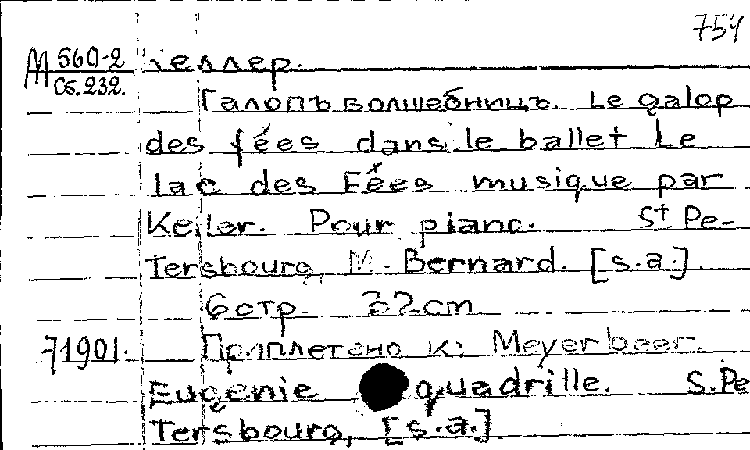 754
М 560-2 Келлер.
Сб. 232.
Галопъ волшебницъ. Le galop
des fées dans le ballet Le
lac des Fées musique par
Keller. Pour piano. St Pe-
tersbourg, M. Bernard. [s.a.].
6 стр 32 cm
71901. Приплетено к: Meyerbeer.
Eugenie quadrille. S. Pe
tersbourg, [s.a.]